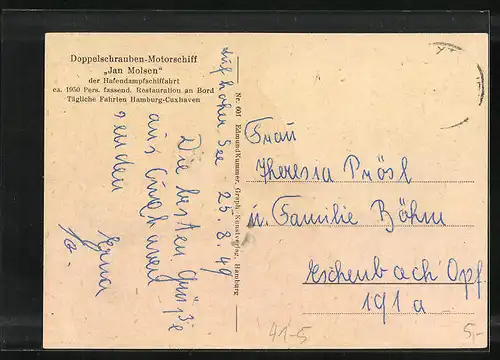 Doppelschrauben-Motorschiff
„Jan Molsen“
der Hafendampfschiffahrt
ca. 1950 Pers. fassend. Restauration an Bord
Tägliche Fahrten Hamburg-Cuxhaven
auf hoher See 25.8.49
Die besten Grüße
aus Cuxhaven
senden
Erna
Nr. 601 Edmund Kummer, Graph. Kunstverlag, Hamburg
Frau
Theresia Prösl
u. Familie Böhm
Eschenbach Opf.
191a
41-5
5,-